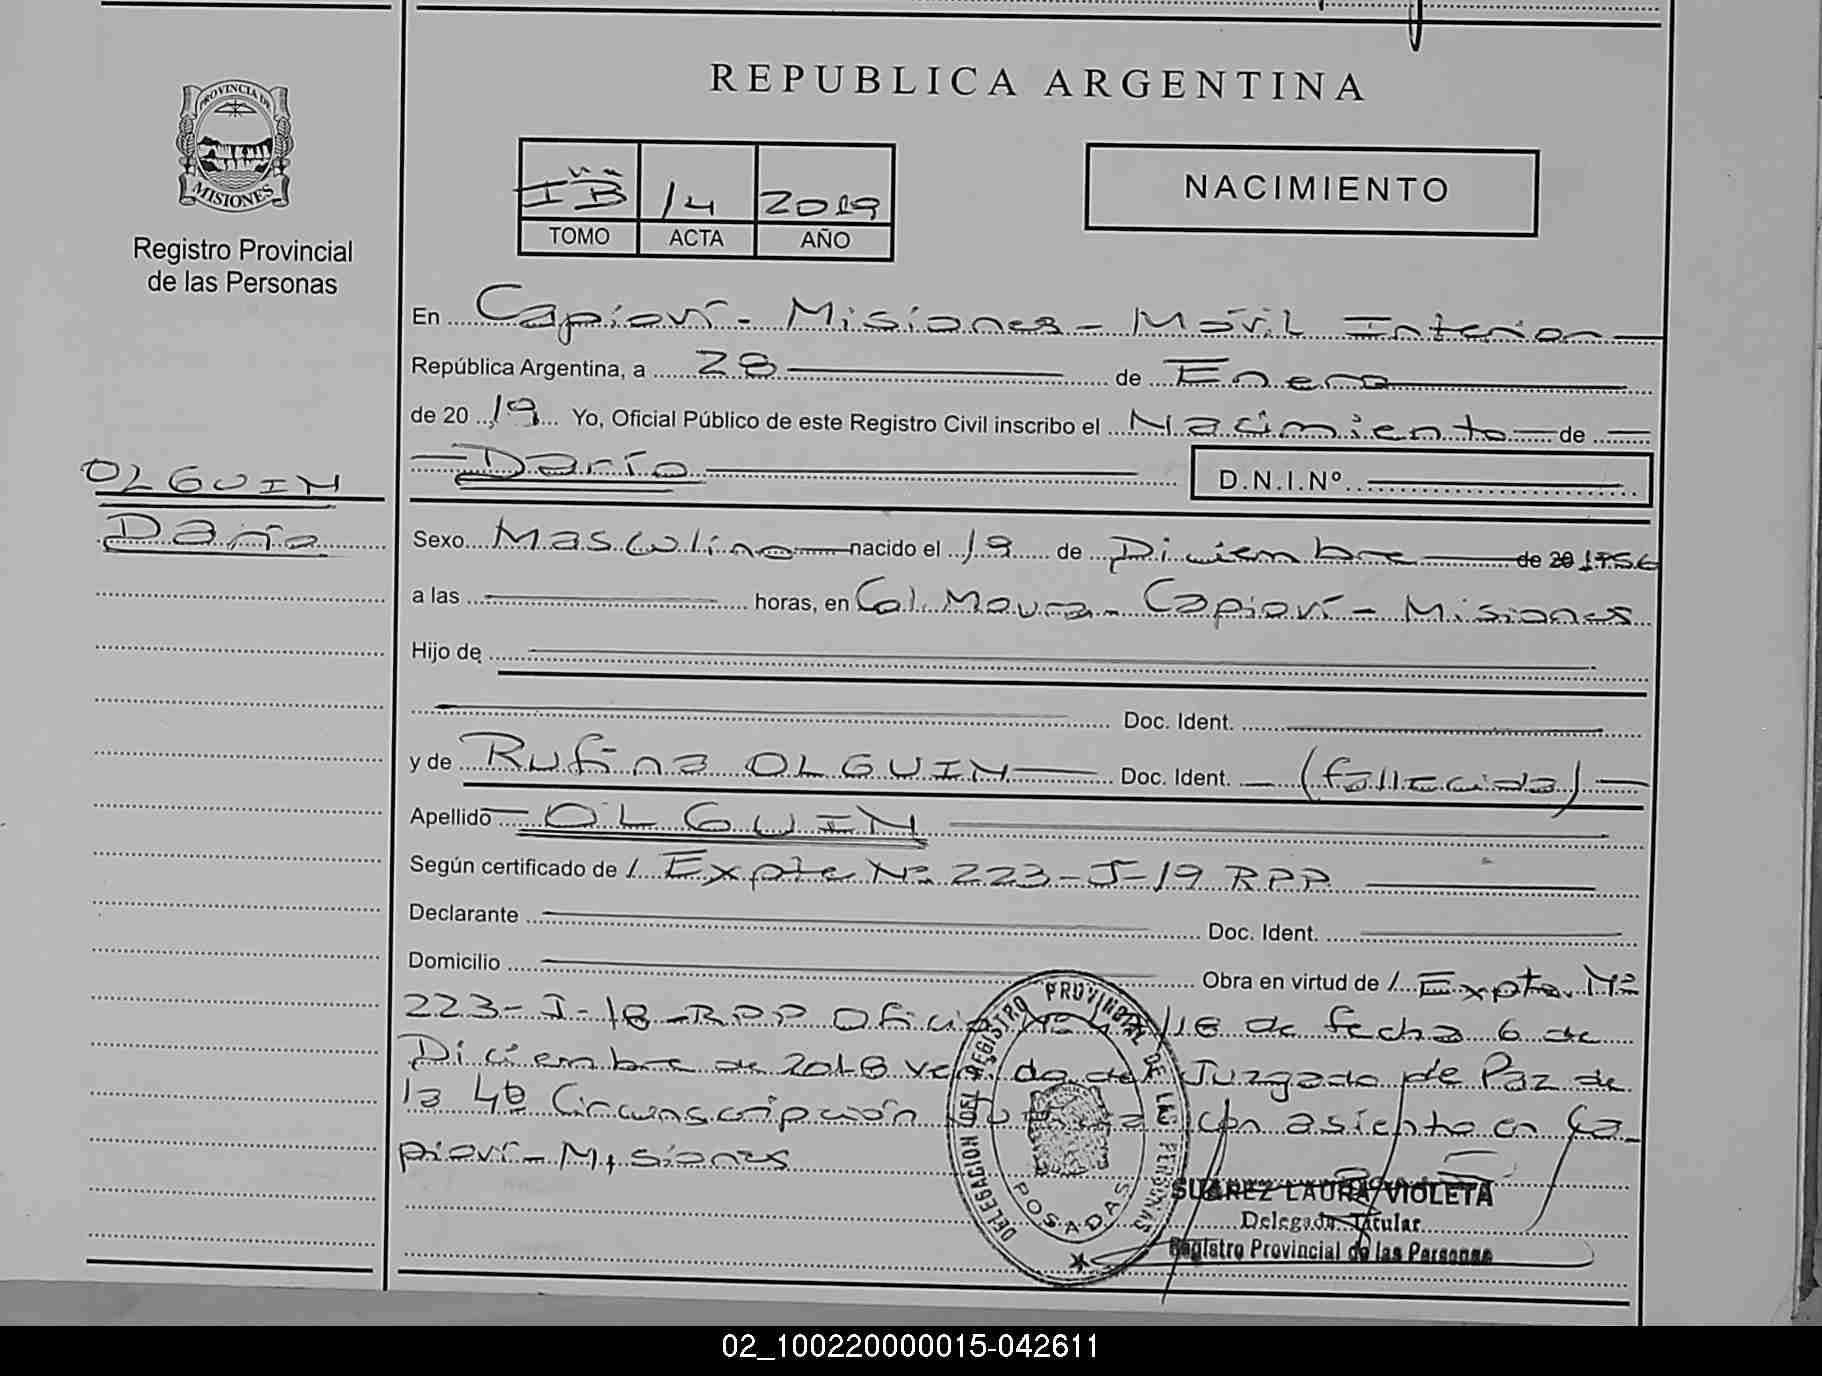 REPUBLICA ARGENTINA
PROVINCIA DE
MISIONES
Registro Provincial
de las Personas
I "B" 14 2019
TOMO ACTA AÑO
NACIMIENTO
En Capioví - Misiones - Móvil Interior
República Argentina, a 28 de Enero
de 2019 Yo, Oficial Público de este Registro Civil inscribo el Nacimiento de
Darío D.N.I.Nº
OLGUIN
Darío
Sexo Masculino nacido el 19 de Diciembre de 20 1956
a las horas, en Col. Moura - Capioví - Misiones
Hijo de
Doc. Ident.
y de Rufina OLGUIN Doc. Ident. (fallecida)
Apellido OLGUIN
Según certificado de / Expte Nº 223-J-19 RPP
Declarante Doc. Ident.
Domicilio Obra en virtud de / Expte. Nº
223-J-18-RPP Oficio /18 de fecha 6 de
Diciembre de 2018 del Juzgado de Paz de
la 4º Circunscripción con asiento en Ca-
pioví - Misiones
DELEGACION DEL REGISTRO PROVINCIAL DE LAS PERSONAS
POSADAS
SUAREZ LAURA VIOLETA
Delegada Titular
Registro Provincial de las Personas
02_100220000015-042611